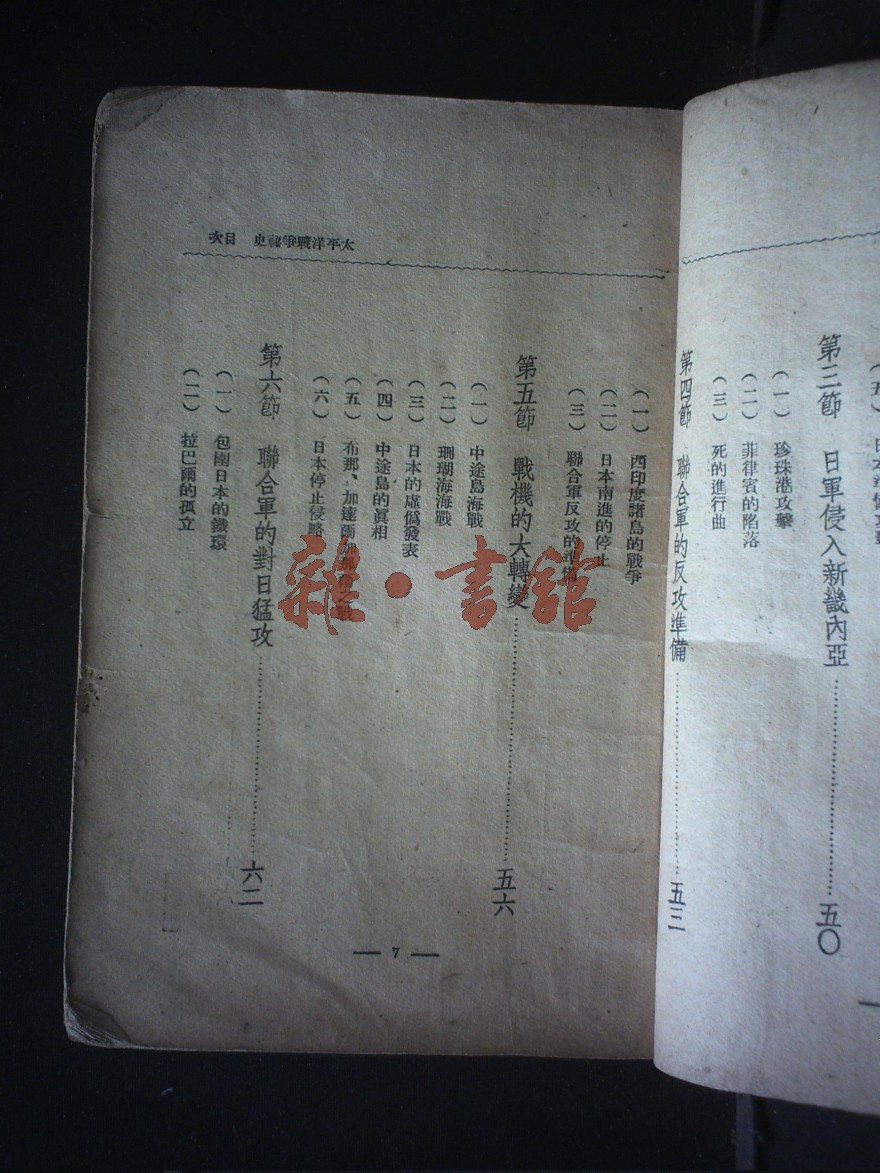 第三節　日軍侵入新畿內亞……五〇
（一）　珍珠港攻擊
（二）　菲律賓的陷落
（三）　死的進行曲
第四節　聯合軍的反攻準備……五三
太平洋戰爭祕史　目次
（一）　西印度諸島的戰爭
（二）　日本南進的停止
（三）　聯合軍反攻的準備
第五節　戰機的大轉變……五六
（一）　中途島海戰
（二）　珊瑚海海戰
（三）　日本的虛僞發表
（四）　中途島的眞相
（五）　布那、加達爾加那爾之戰
（六）　日本停止侵略
第六節　聯合軍的對日猛攻……六二
（一）　包圍日本的鐵環
（二）　拉巴爾的孤立
— 7 —
雜·書館